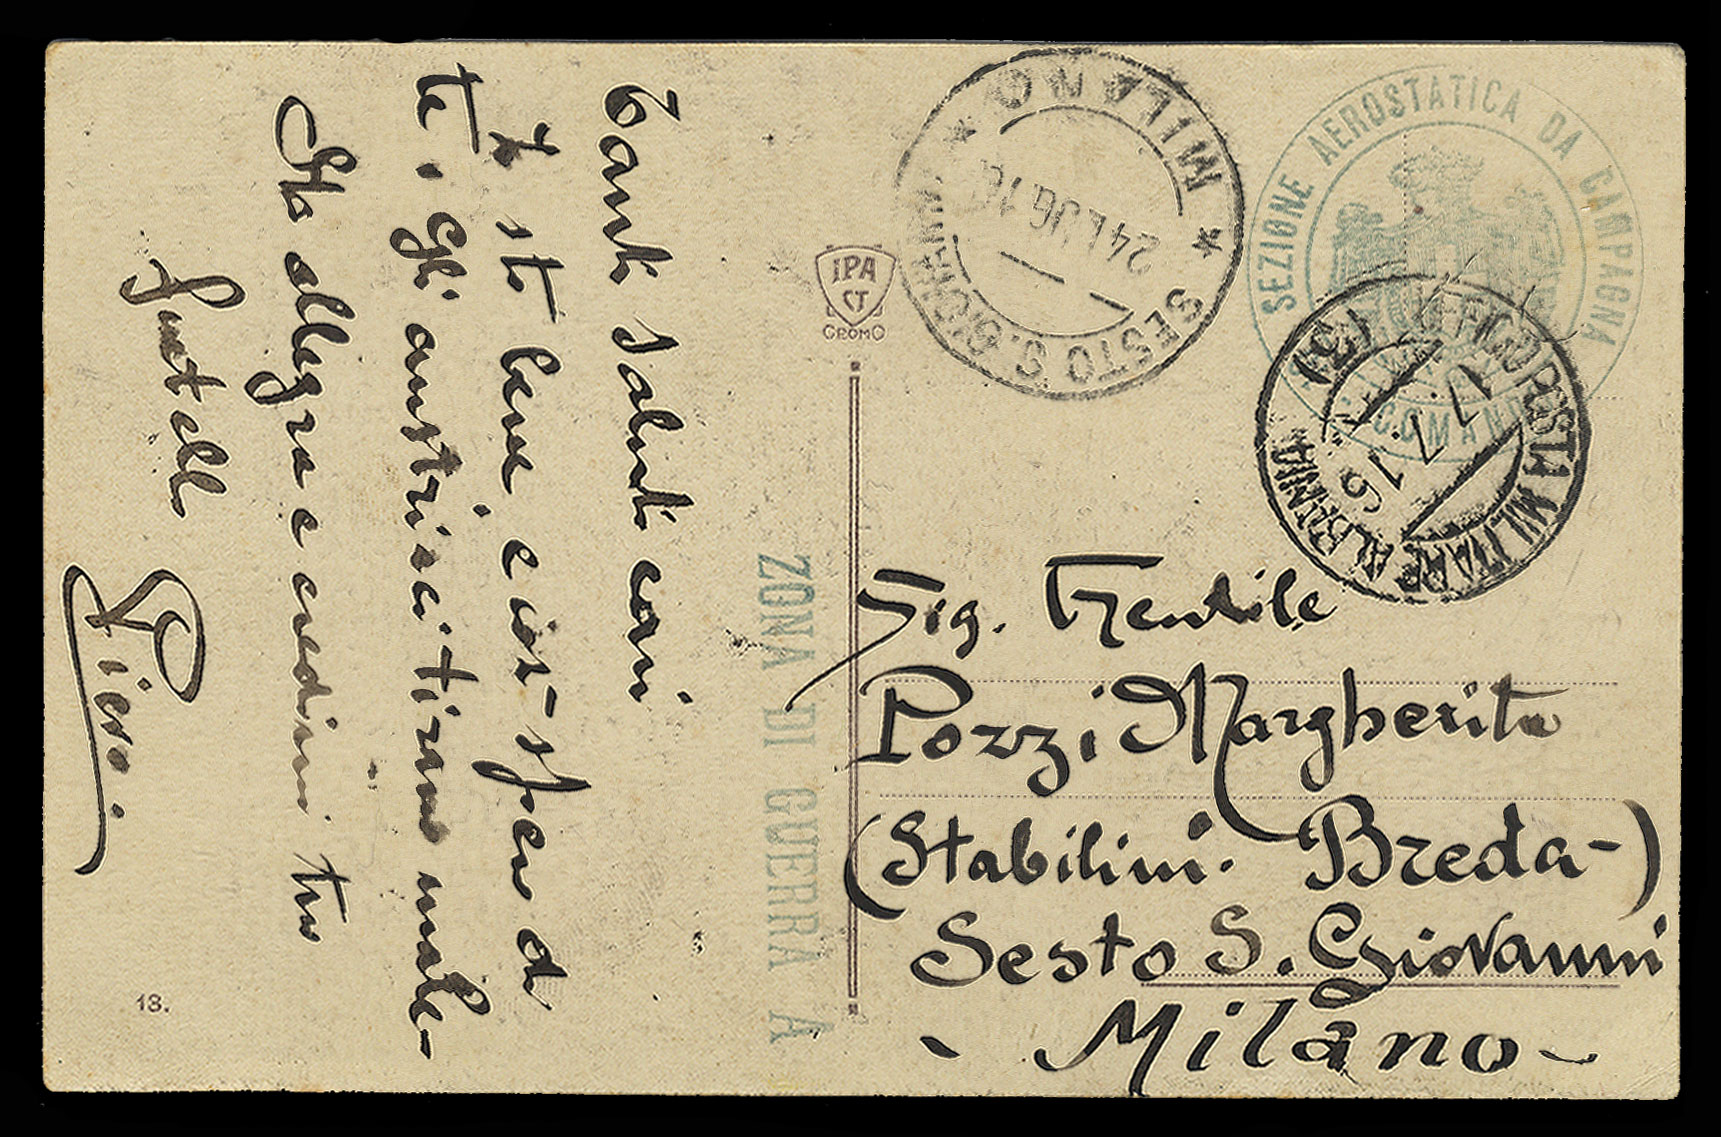 Tanti saluti cari
Io sto bene e così spero di
te. Gli austriaci tirano male-
Sta allegra e credimi tuo
fratello
Piero.
18.
IPA
CT
CROMO
ZONA DI GUERRA A
MILANO
* SESTO S. GIOVANNI *
24 LUG 16
SEZIONE AEROSTATICA DA CAMPAGNA
COMANDO
UFFICIO POSTA MILITARE ALBANIA
17.7.16
Sig. Gentile
Pozzi Margherita
(Stabilim. Breda-)
Sesto S. Giovanni
- Milano -